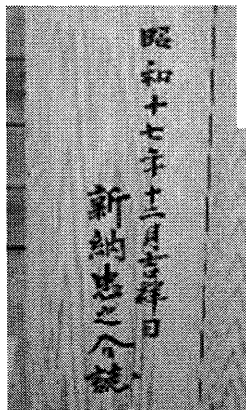 昭和十七年十二月吉祥日
新納忠之介誌